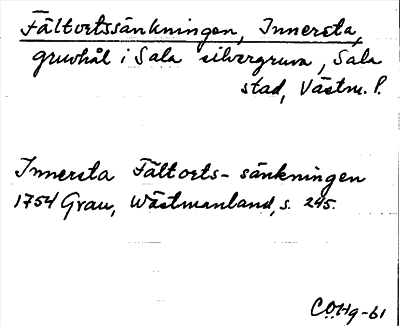 Fältortssänkningen, Innersta,
gruvhål i Sala silvergruva, Sala
stad, Västm. l.
Innersta Fältorts-sänkningen
1754 Grau, Wästmanland, s. 245.
C.O.Hg-61